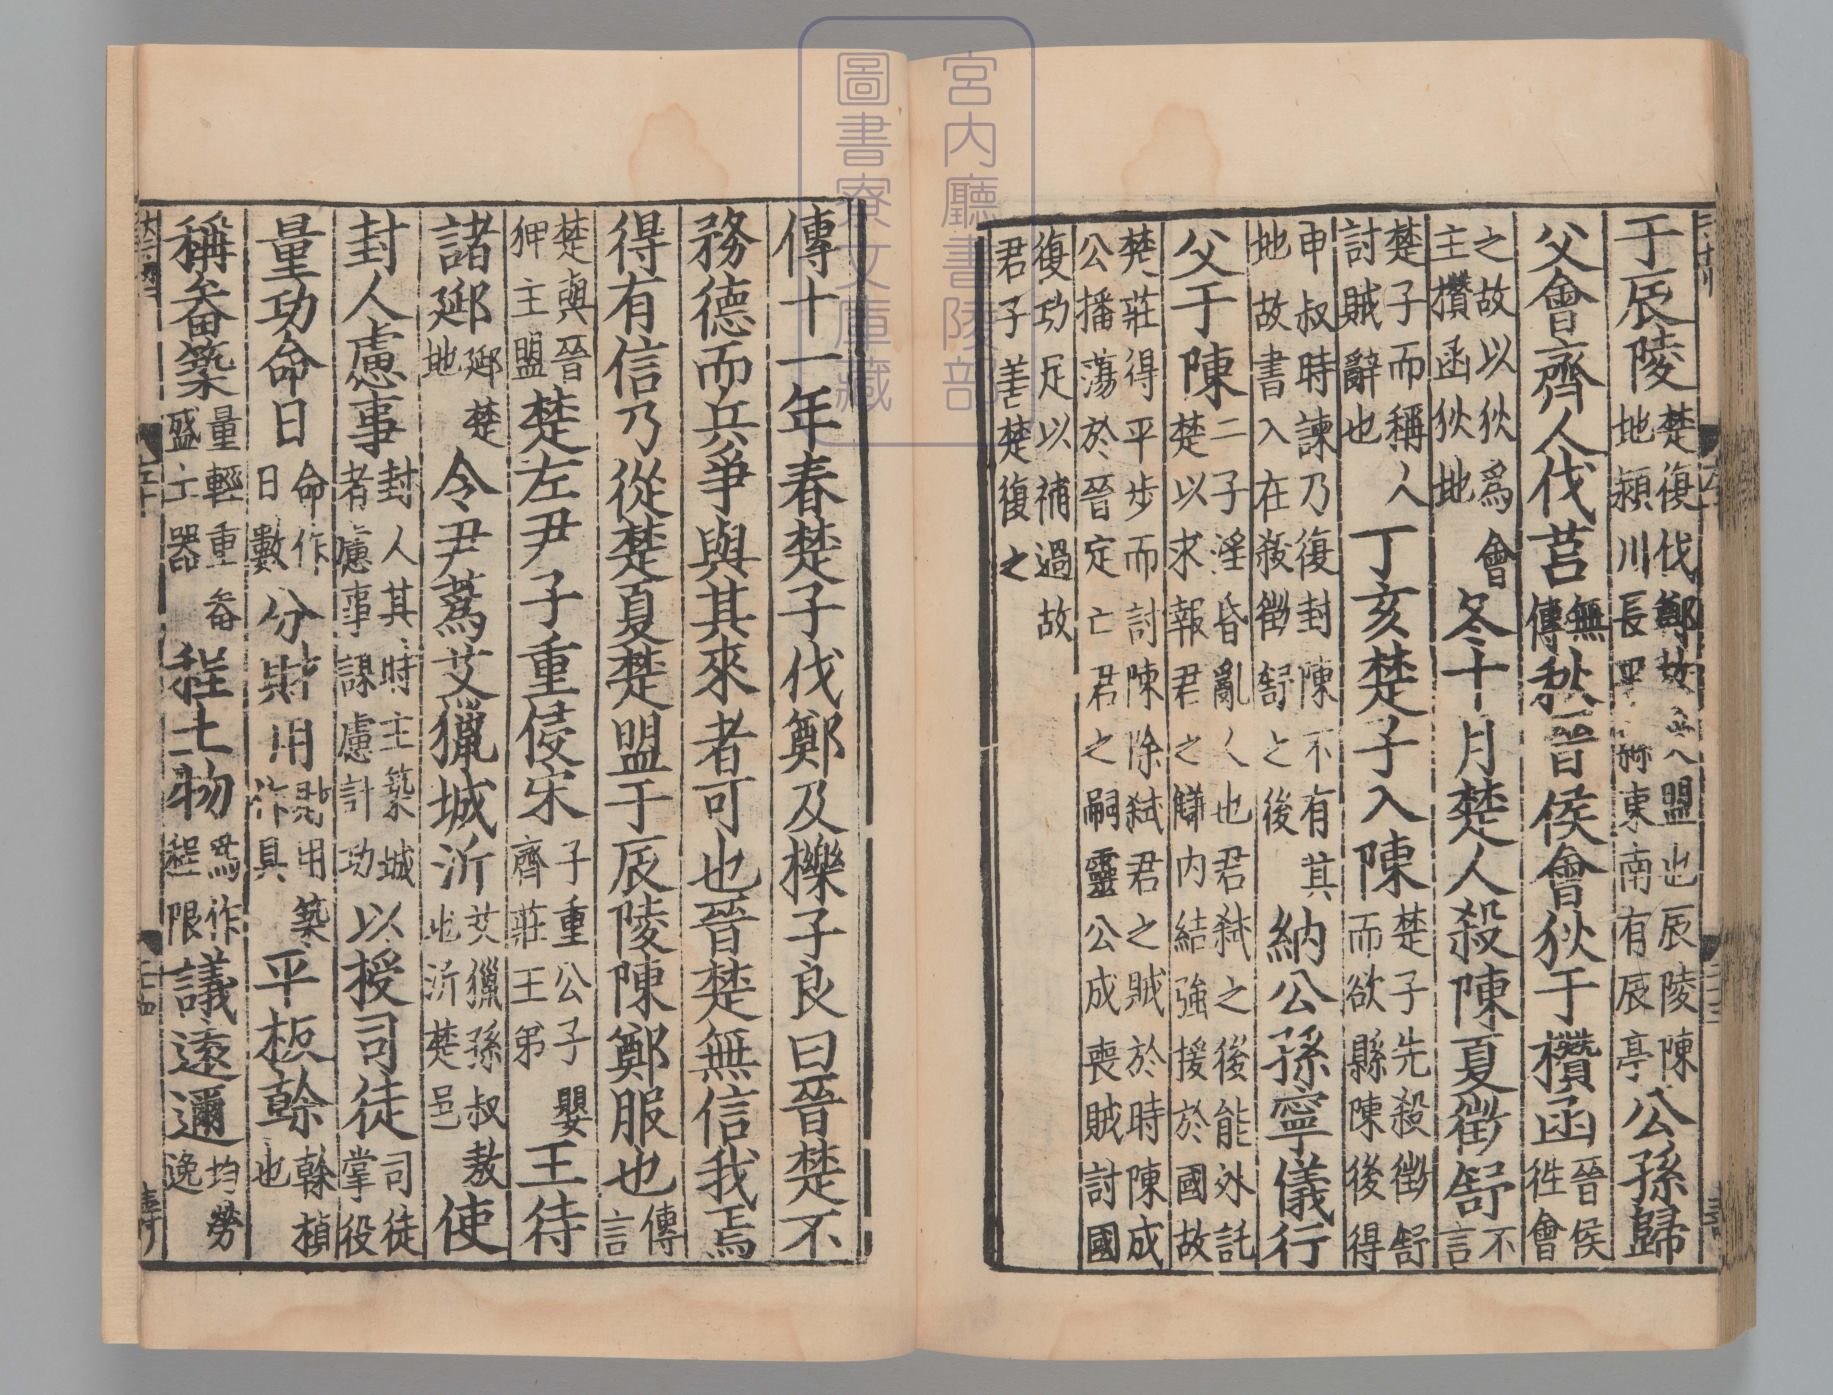 宮内廳書陵部
圖書寮文庫藏
于辰陵楚復伐鄭故受盟也辰陵陳地潁川長平縣東南有辰亭公孫歸
父會齊人伐莒無傳秋晉侯會狄于欑函晉侯徃會
之故以狄爲會主攢函狄地冬十月楚人殺陳夏徵舒不言
楚子而稱人討賊辭也丁亥楚子入陳楚子先殺徵舒而欲縣陳後得
申叔時諫乃復封陳不有其地故書入在殺徵舒之後納公孫寧儀行
父于陳二子淫昏亂人也君弑之後能外託楚以求報君之讎内結強援於國故
楚莊得平步而討陳除弑君之賊於時陳成公播蕩於晉定亡君之嗣靈公成喪賊討國
復功足以補過故君子善楚復之
傳十一年春楚子伐鄭及櫟子良曰晉楚不
務德而兵爭與其來者可也晉楚無信我焉
得有信乃從楚夏楚盟于辰陵陳鄭服也傳言
楚與晉狎主盟楚左尹子重侵宋子重公子嬰齊莊王弟王待
諸郔郔楚地令尹蔿艾獵城沂艾獵孫叔敖也沂楚邑使
封人慮事封人其時主築城者慮事謀慮計功以授司徒司徒掌役
量功命日命作日數分財用財用築作具平板榦榦楨也
稱畚築量輕重畚盛土器程土物爲作程限議遠邇均勞逸